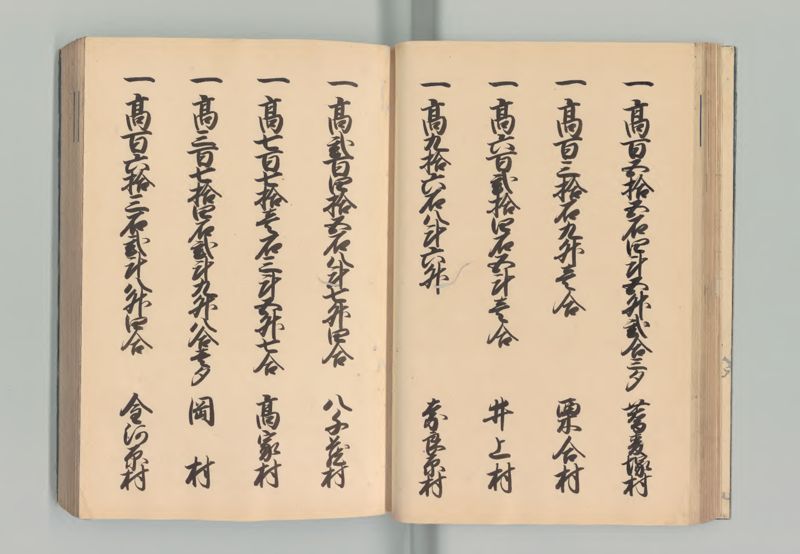 一高百五拾五石四斗五升弐合三夕 蕎麦塚村
一高百三拾石九升壱合 栗合村
一高六百弐拾四石五斗壱合 井上村
一高九拾六石八斗六升 奈良原村
一高弐百四拾五石八斗七升四合 八千蔵村
一高七百七拾壱石三斗五升七合 高家村
一高三百七拾四石弐斗九升八合壱夕 岡村
一高百六拾三石弐斗八升四合 金河原村